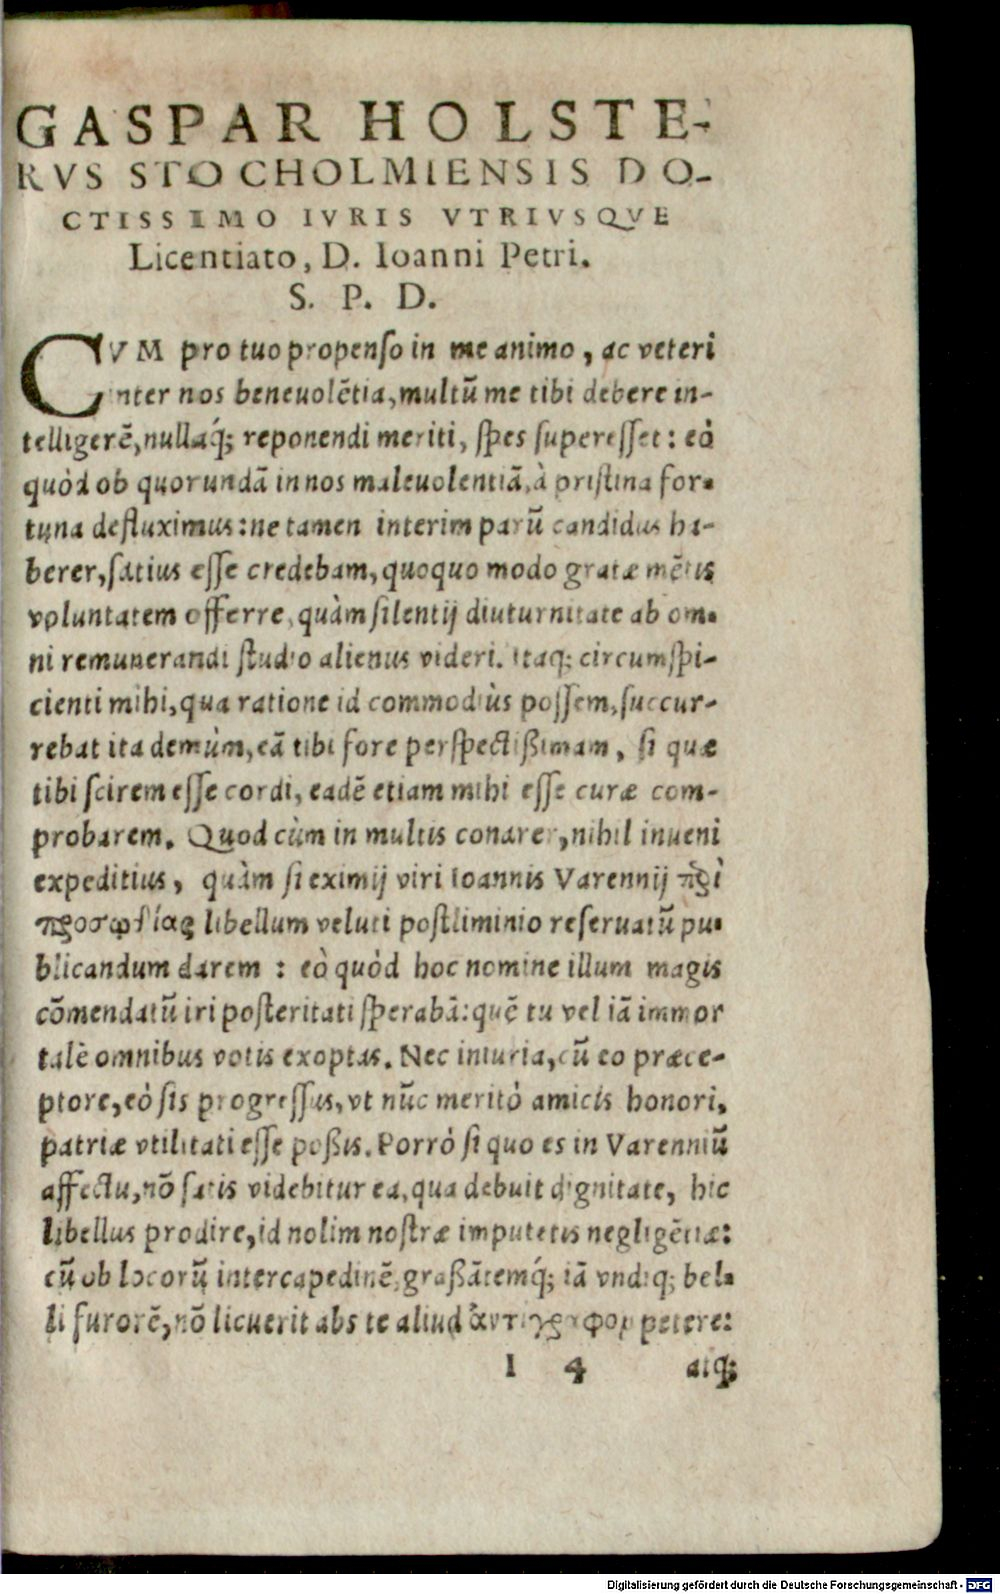 GASPAR HOLSTE-
RVS STOCHOLMIENSIS DO-
CTISSIMO IVRIS VTRIVSQVE
Licentiato, D. Ioanni Petri.
S. P. D.
CVM pro tuo propenso in me animo, ac veteri
inter nos beneuolẽtia, multũ me tibi debere in-
telligerẽ, nullaq́; reponendi meriti, spes superesset: eò
quòd ob quorundã in nos maleuolentiã, à pristina for-
tuna defluximus: ne tamen interim parũ candidus ha-
berer, satius esse credebam, quoquo modo gratæ mẽtis
voluntatem offerre, quàm silentij diuturnitate ab om-
ni remunerandi studio alienus videri. Itaq; circumspi-
cienti mihi, qua ratione id commodiùs possem, succur-
rebat ita demùm, eã tibi fore perspectißimam, si quæ
tibi scirem esse cordi, eadẽ etiam mihi esse curæ com-
probarem. Quod cùm in multis conarer, nihil inueni
expeditius, quàm si eximij viri Ioannis Varennij πεϱὶ
πϱοσῳδίας libellum veluti postliminio reseruatũ pu-
blicandum darem : eò quòd hoc nomine illum magis
cõmendatũ iri posteritati sperabã: quẽ tu vel iã immor
talẽ omnibus votis exoptas. Nec iniuria, cũ eo præce-
ptore, eò sis progressus, vt nũc meritò amicis honori,
patriæ vtilitati esse poßis. Porrò si quo es in Varenniũ
affectu, nõ satis videbitur ea, qua debuit dignitate, hic
libellus prodire, id nolim nostræ imputetis negligẽtiæ:
cũ ob locorũ intercapedinẽ, graßãtemq́; iã vndiq; bel-
li furorẽ, nõ licuerit abs te aliud ἀντίγϱαφον petere:
I 4 atq;
Digitalisierung gefördert durch die Deutsche Forschungsgemeinschaft - DFG